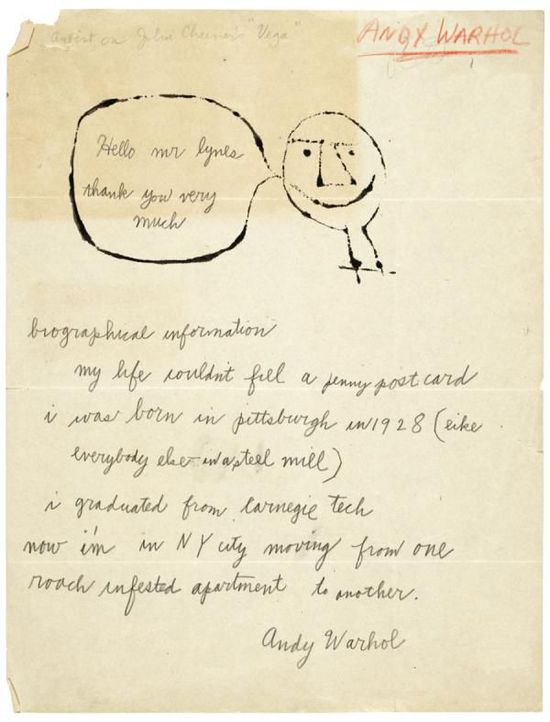 Artist on Julie Cheever's "Vega"
ANDY WARHOL
Hello mr lynes
thank you very
much
biographical information
my life wouldn't fill a penny post card
i was born in pittsburgh in 1928 (like
everybody else - in a steel mill)
i graduated from carnegie tech
now i'm in NY city moving from one
roach infested apartment to another.
Andy Warhol